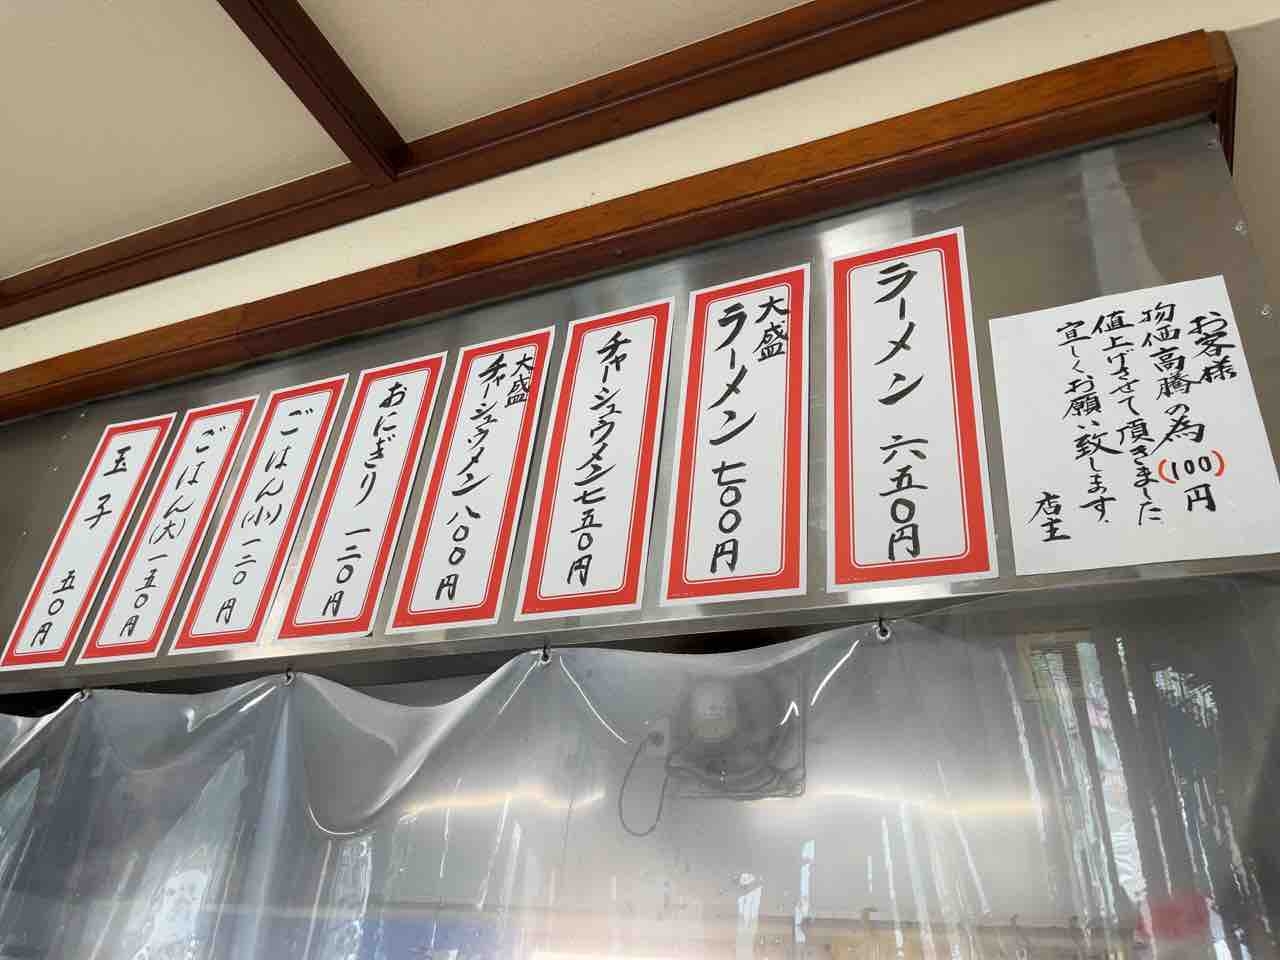 お客様
物価高騰の為(100)円
値上げさせて頂きました
宜しくお願い致します.
店主
ラーメン 六五〇円
大盛
ラーメン 七〇〇円
チャーシュウメン 七五〇円
大盛
チャーシュウメン 八〇〇円
おにぎり 一二〇円
ごはん(小) 一二〇円
ごはん(大) 一五〇円
玉子 五〇円